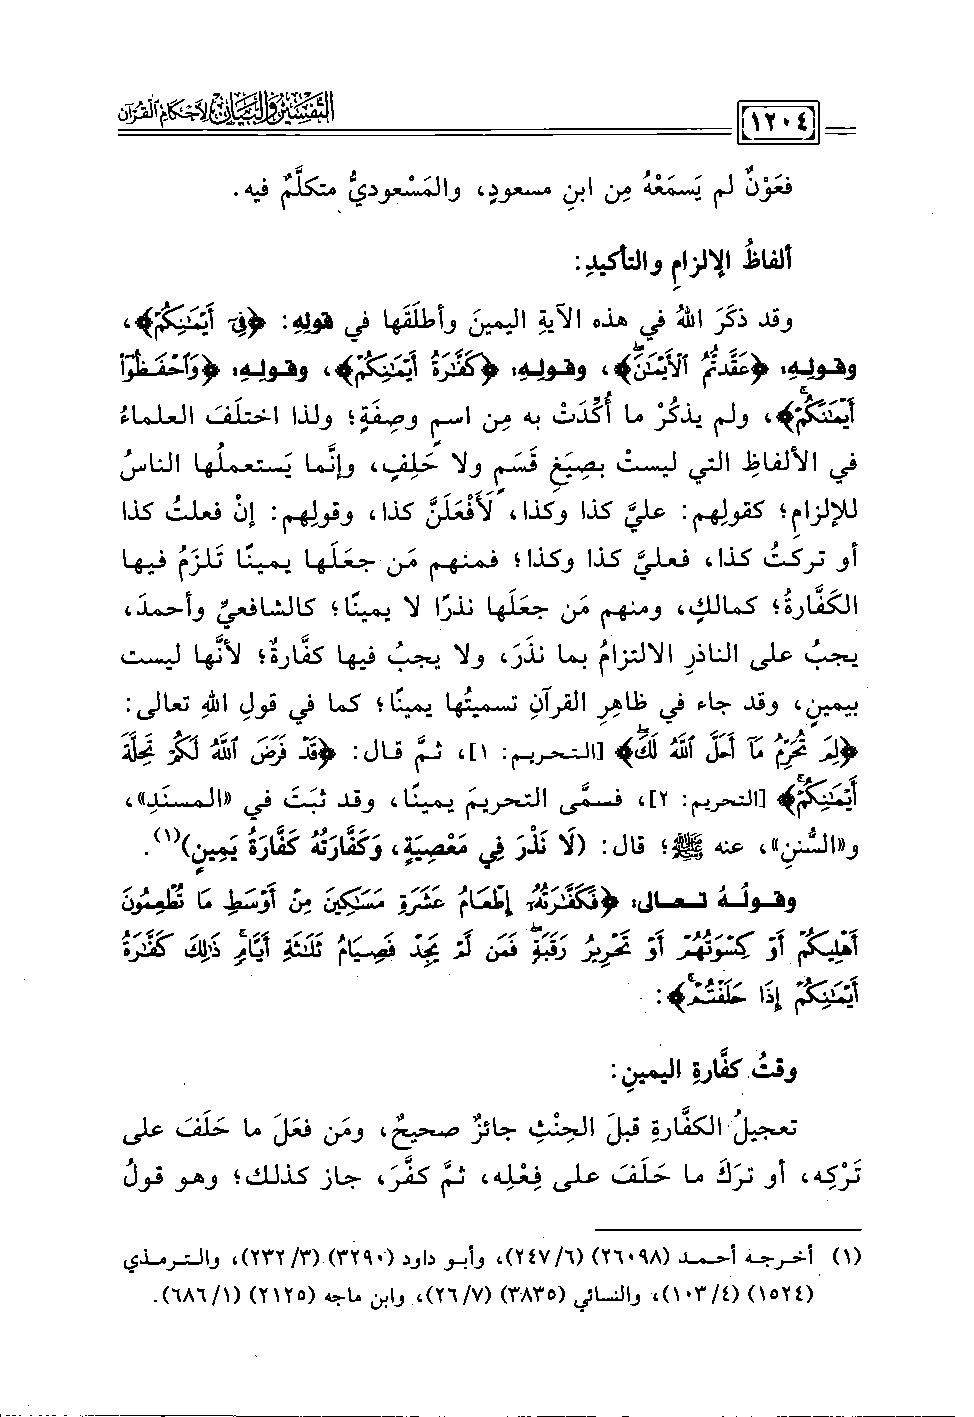 التفسير والبيان لأحكام القرآن
١٢٠٤
فعَوْنٌ لم يَسمَعْهُ مِن ابنِ مسعودٍ، والمَسْعوديُّ متكلَّمٌ فيه.
ألفاظُ الإلزامِ والتأكيدِ:
وقد ذكَرَ اللهُ في هذه الآيةِ اليمينَ وأطلَقَها في قولِهِ: ﴿فِىٓ أَيْمَٰنِكُمْ﴾،
وقولِهِ: ﴿عَقَّدتُّمُ ٱلْأَيْمَٰنَۖ﴾، وقولِهِ: ﴿كَفَّٰرَةُ أَيْمَٰنِكُمْ﴾، وقولِهِ: ﴿وَٱحْفَظُوٓا۟
أَيْمَٰنَكُمْۚ﴾، ولم يذكُرْ ما أُكِّدَتْ به مِن اسمٍ وصِفَةٍ؛ ولذا اختلَفَ العلماءُ
في الألفاظِ التي ليستْ بصِيَغِ قَسَمٍ ولا حَلِفٍ، وإنَّما يَستعمِلُها الناسُ
للإلزامِ؛ كقولِهم: عليَّ كذا وكذا، لَأَفْعَلَنَّ كذا، وقولِهم: إنْ فعلتُ كذا
أو تركتُ كذا، فعليَّ كذا وكذا؛ فمنهم مَن جعَلَها يمينًا تَلزَمُ فيها
الكفَّارةُ؛ كمالكٍ، ومنهم مَن جعَلَها نذرًا لا يمينًا؛ كالشافعيِّ وأحمدَ،
يجبُ على الناذرِ الالتزامُ بما نذَرَ، ولا يجبُ فيها كفَّارةٌ؛ لأنَّها ليست
بيمينٍ، وقد جاء في ظاهرِ القرآنِ تسميتُها يمينًا؛ كما في قولِ اللهِ تعالى:
﴿لِمَ تُحَرِّمُ مَآ أَحَلَّ ٱللَّهُ لَكَۖ﴾ [التحريم: ١]، ثمَّ قال: ﴿قَدْ فَرَضَ ٱللَّهُ لَكُمْ تَحِلَّةَ
أَيْمَٰنِكُمْۚ﴾ [التحريم: ٢]، فسمَّى التحريمَ يمينًا، وقد ثبَتَ في «المسنَدِ»،
و«السُّننِ»، عنه ﷺ؛ قال: (لَا نَذْرَ فِي مَعْصِيَةٍ، وَكَفَّارَتُهُ كَفَّارَةُ يَمِينٍ)(١).
وقولُهُ تعالى: ﴿فَكَفَّٰرَتُهُۥٓ إِطْعَامُ عَشَرَةِ مَسَٰكِينَ مِنْ أَوْسَطِ مَا تُطْعِمُونَ
أَهْلِيكُمْ أَوْ كِسْوَتُهُمْ أَوْ تَحْرِيرُ رَقَبَةٍۖ فَمَن لَّمْ يَجِدْ فَصِيَامُ ثَلَٰثَةِ أَيَّامٍۚ ذَٰلِكَ كَفَّٰرَةُ
أَيْمَٰنِكُمْ إِذَا حَلَفْتُمْۚ﴾:
وقتُ كفَّارةِ اليمينِ:
تعجيلُ الكفَّارةِ قبلَ الحِنْثِ جائزٌ صحيحٌ، ومَن فعَلَ ما حَلَفَ على
تَرْكِه، أو ترَكَ ما حَلَفَ على فِعْلِه، ثمَّ كفَّرَ، جاز كذلك؛ وهو قولُ
(١) أخرجه أحمد (٢٦٠٩٨) (٦/ ٢٤٧)، وأبو داود (٣٢٩٠) (٣/ ٢٣٢)، والترمذي
(١٥٢٤) (٤/ ١٠٣)، والنسائي (٣٨٣٥) (٧/ ٢٦)، وابن ماجه (٢١٢٥) (١/ ٦٨٦).